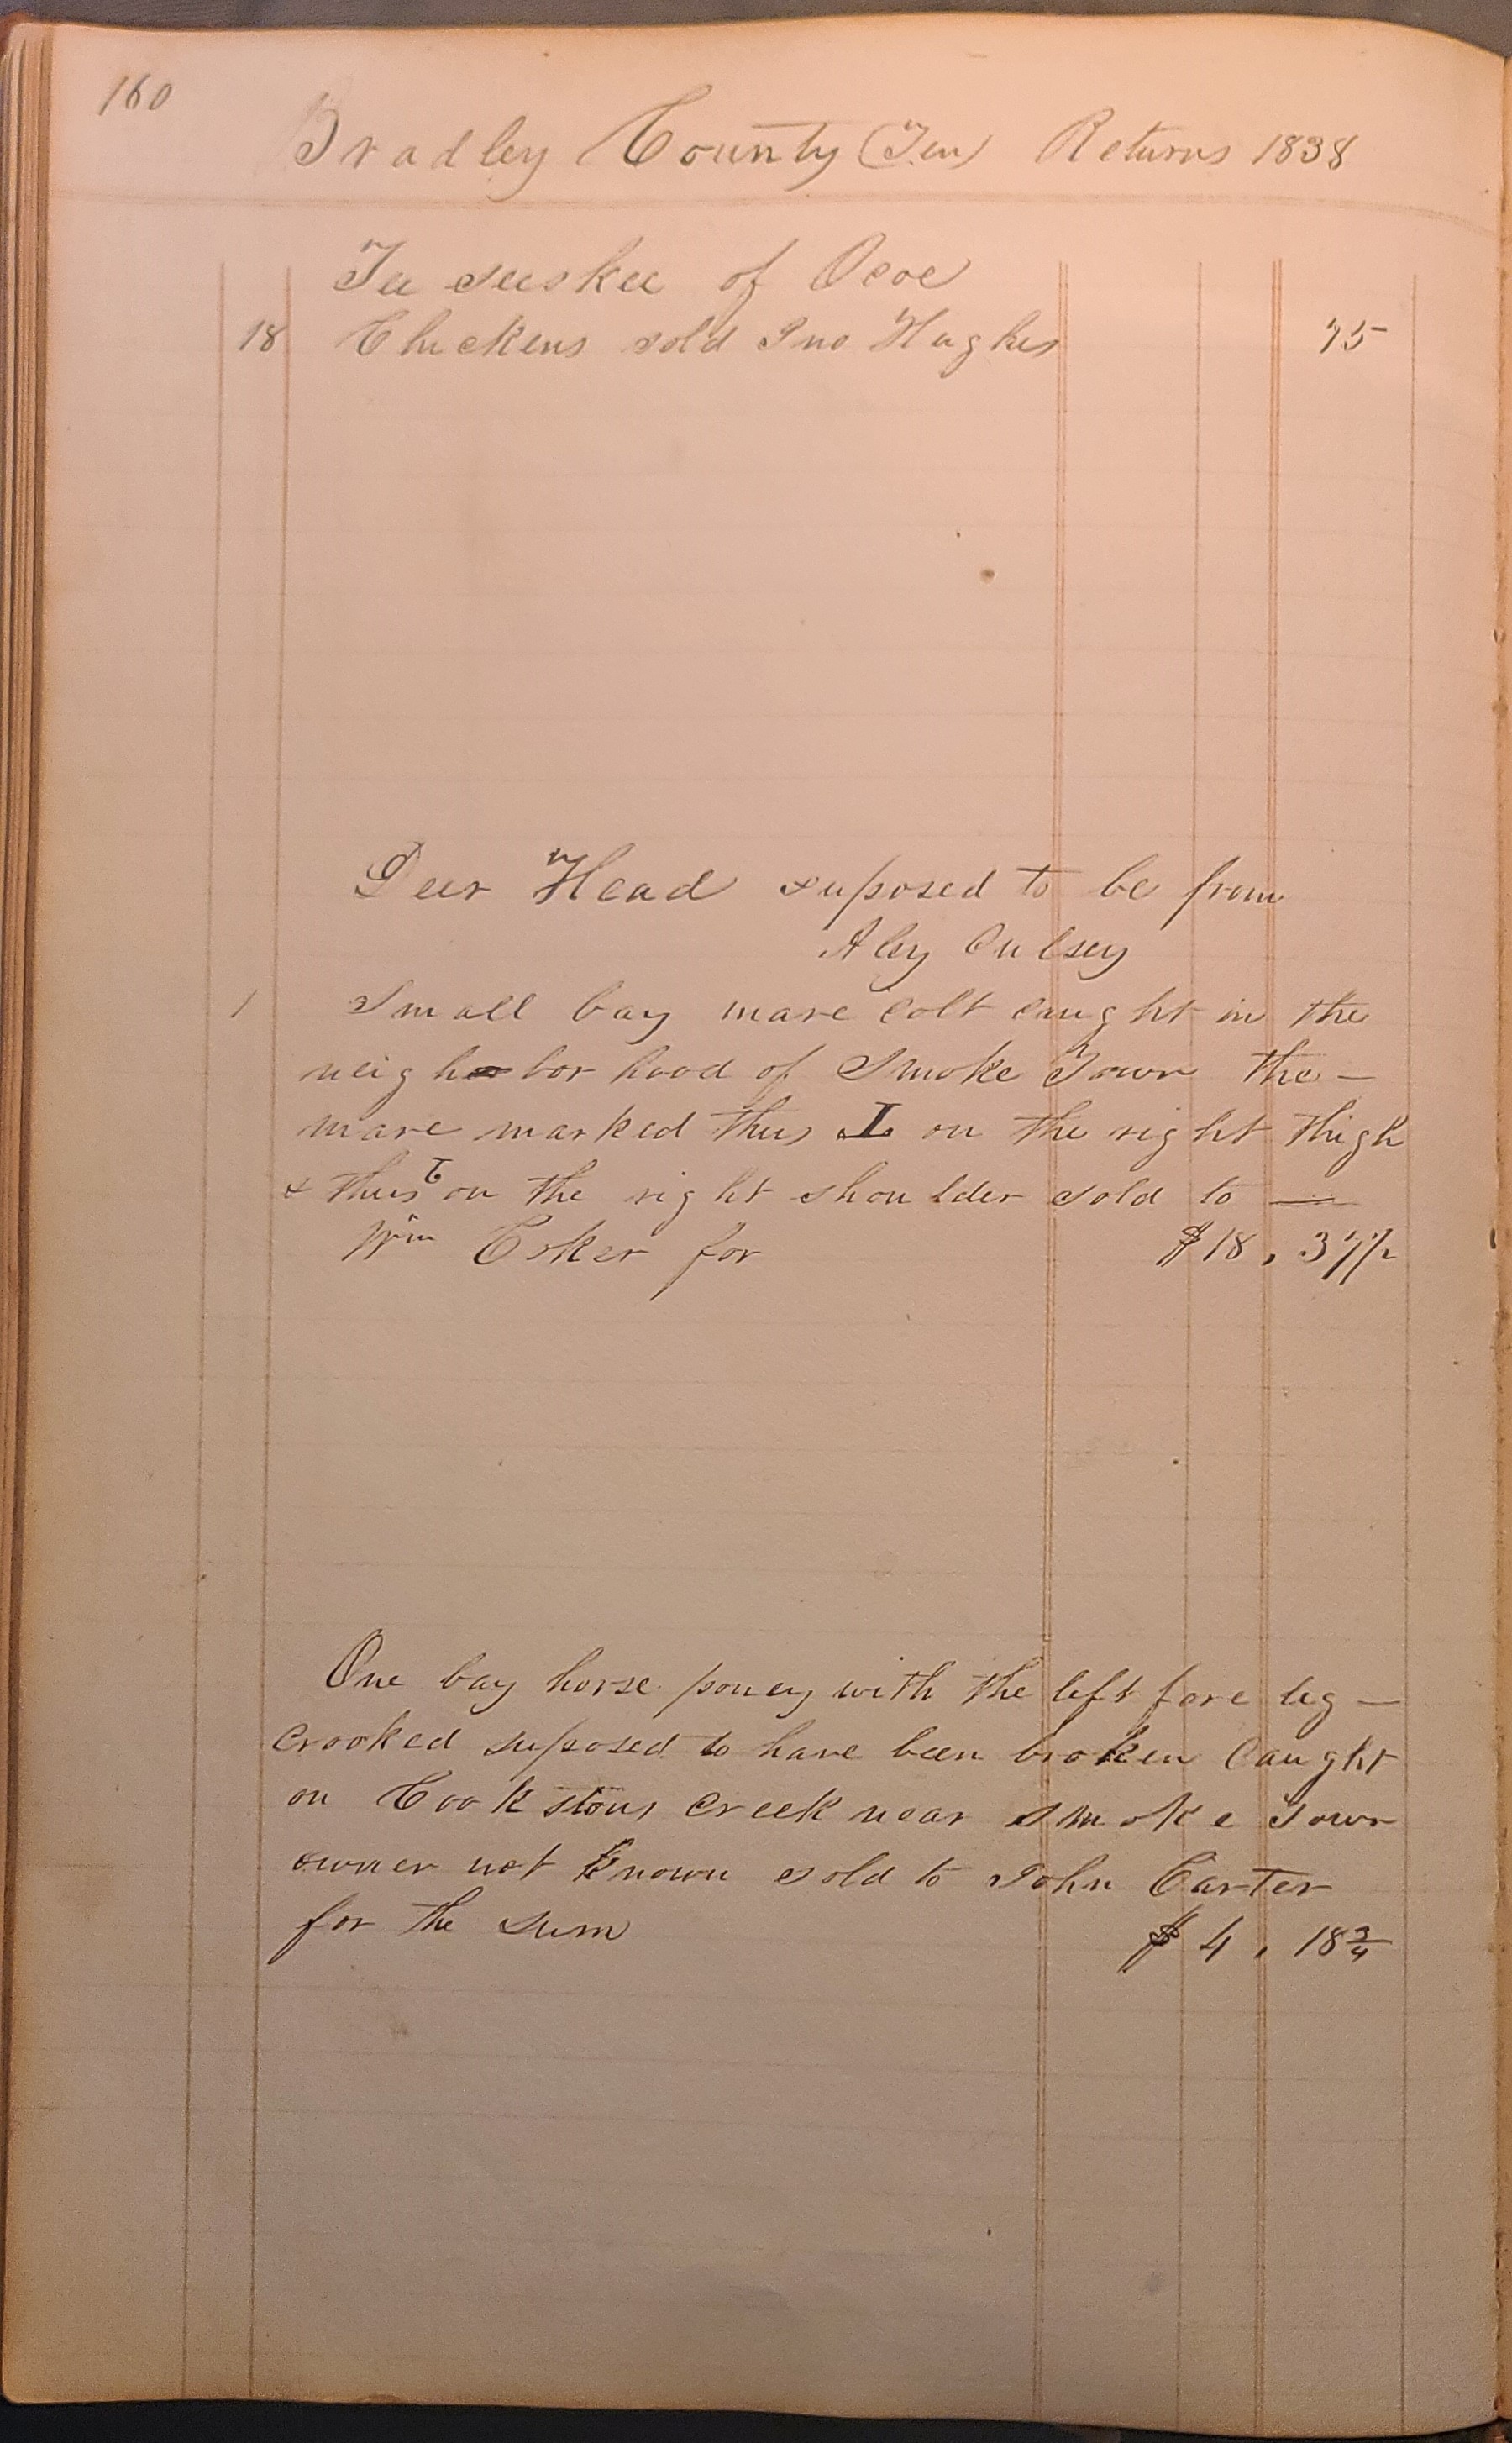 160
Bradley County (Ten) Returns 1838
Te suskee of Ocoe
18 Chickens sold Jno Hughes 75
Deer Head suposed to be from
Aley Culsey
1 Small bay mare colt caught in the
neighbor hood of Smoke Town the —
mare marked thus I on the right thigh
& thus T on the right shoulder sold to —
Wm Coker for $18, 37 1/2
One bay horse poney with the left fore leg —
crooked suposed to have been broken caught
on Cookstons creek near Smoke Town
owner not known sold to John Carter
for the sum $ 4, 18 3/4